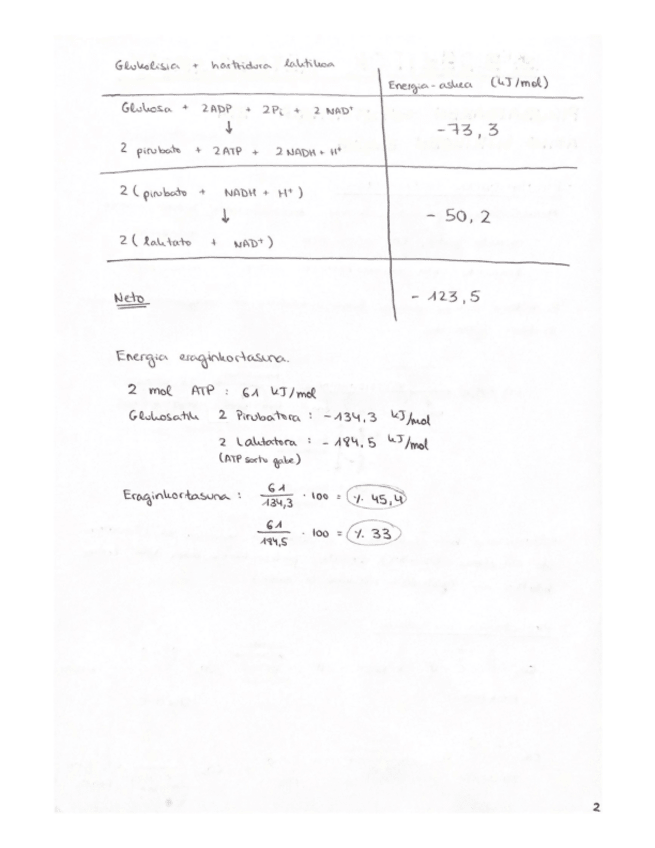 Glukolisia + hartzidura laktikoa
Energia-askea (kJ/mol)
Glukosa + 2ADP + 2Pi + 2 NAD⁺
↓
2 pirubato + 2ATP + 2NADH + H⁺
-73,3
2 (pirubato + NADH + H⁺)
↓
2 (laktato + NAD⁺)
- 50,2
Neto
- 123,5
Energia eraginkortasuna.
2 mol ATP : 61 kJ/mol
Glukosatik 2 Pirubatora : -134,3 kJ/mol
2 Laktatora : - 184,5 kJ/mol
(ATP sortu gabe)
Eraginkortasuna : 61/134,3 · 100 = % 45,4
61/184,5 · 100 = % 33
2